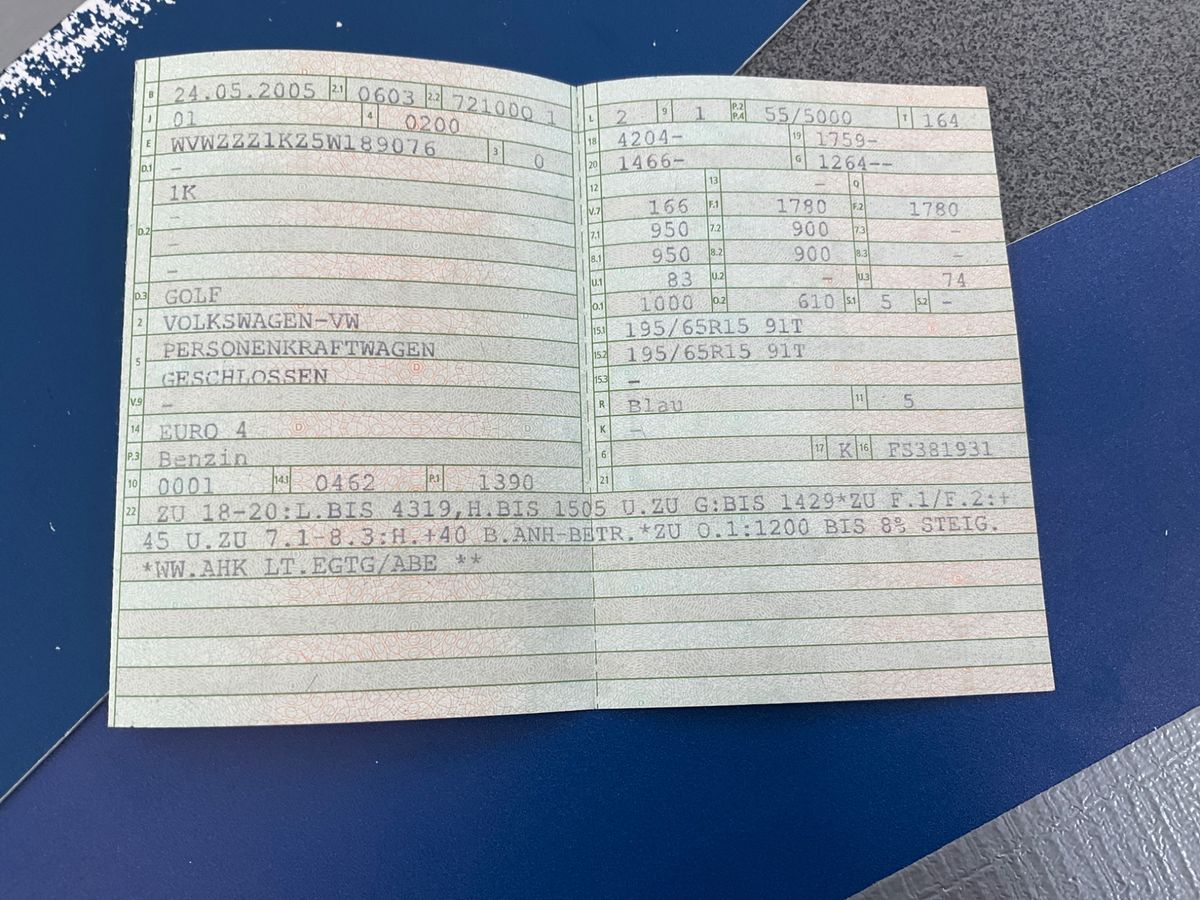 B 24.05.2005 2.1 0603 2.2 721000 1
J 01 4 0200
E WVWZZZ1KZ5W189076 3 0
D.1 -
1K
-
D.2 -
-
D.3 GOLF
2 VOLKSWAGEN-VW
5 PERSONENKRAFTWAGEN
GESCHLOSSEN
V.9 -
14 EURO 4
P.3 Benzin
10 0001 14.1 0462 P.1 1390
L 2 9 1 P.2 P.4 55/5000 T 164
18 4204- 19 1759-
20 1466- G 1264--
12 13 - Q
V.7 166 F.1 1780 F.2 1780
7.1 950 7.2 900 7.3 -
8.1 950 8.2 900 8.3 -
U.1 83 U.2 - U.3 74
O.1 1000 O.2 610 S.1 5 S.2 -
15.1 195/65R15 91T
15.2 195/65R15 91T
15.3 -
R Blau 11 5
K -
6 17 K 16 FS381931
21
22 ZU 18-20:L.BIS 4319,H.BIS 1505 U.ZU G:BIS 1429*ZU F.1/F.2:+
45 U.ZU 7.1-8.3:H.+40 B.ANH-BETR.*ZU O.1:1200 BIS 8% STEIG.
*WW.AHK LT.EGTG/ABE **